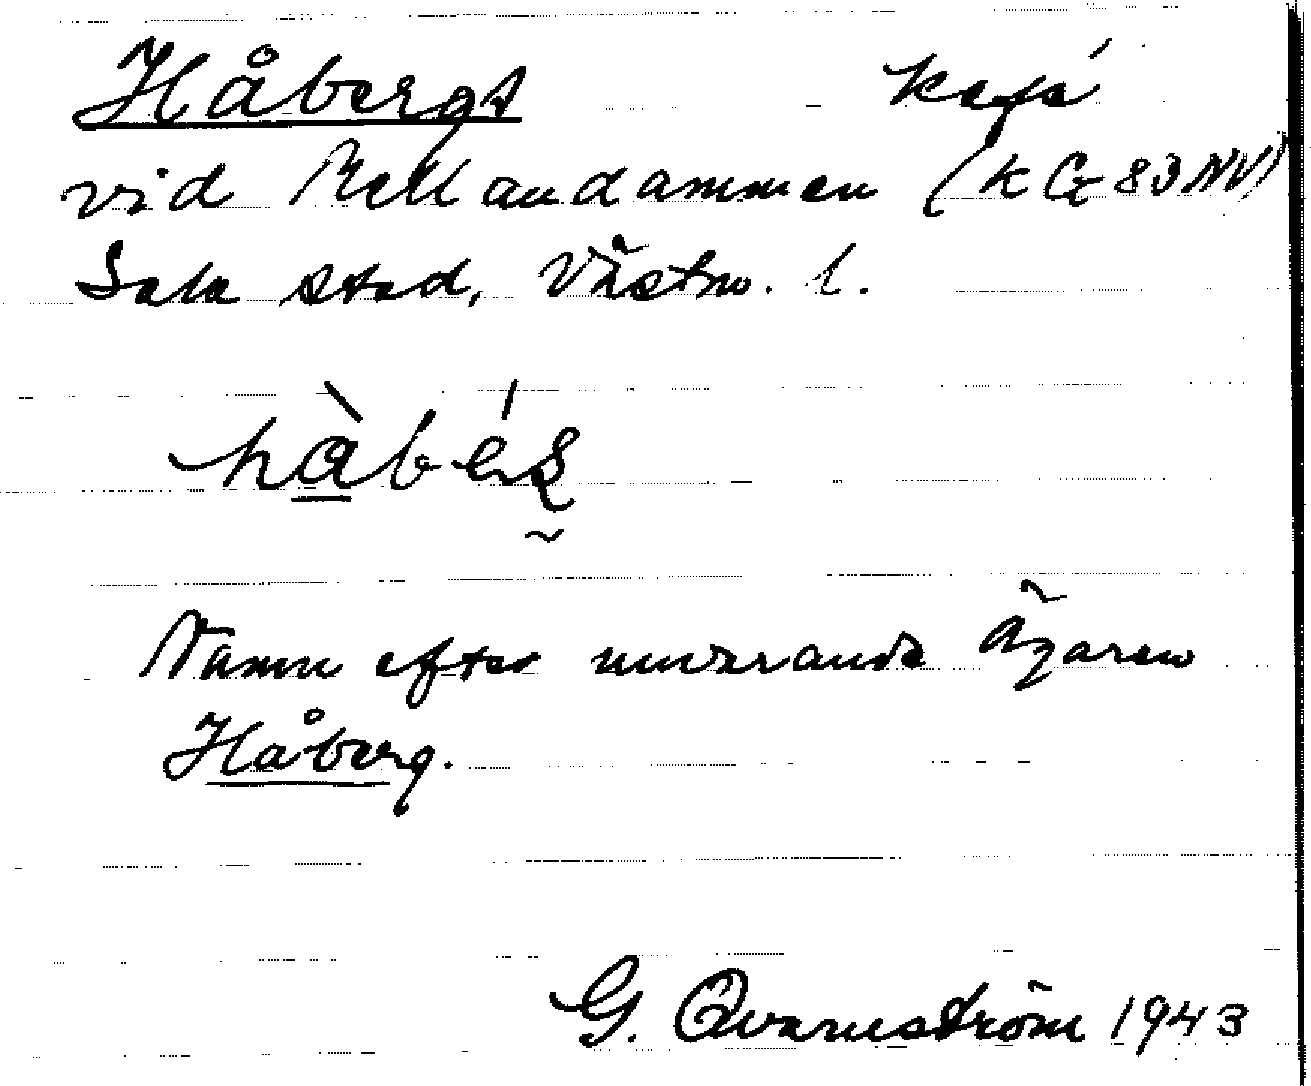 Håbergs kafé
vid Mellandammen (k G 83 NV)
Sala stad, Västm. l.
Namn efter nuvarande ägaren
Håberg.
G. Qvarnström 1943